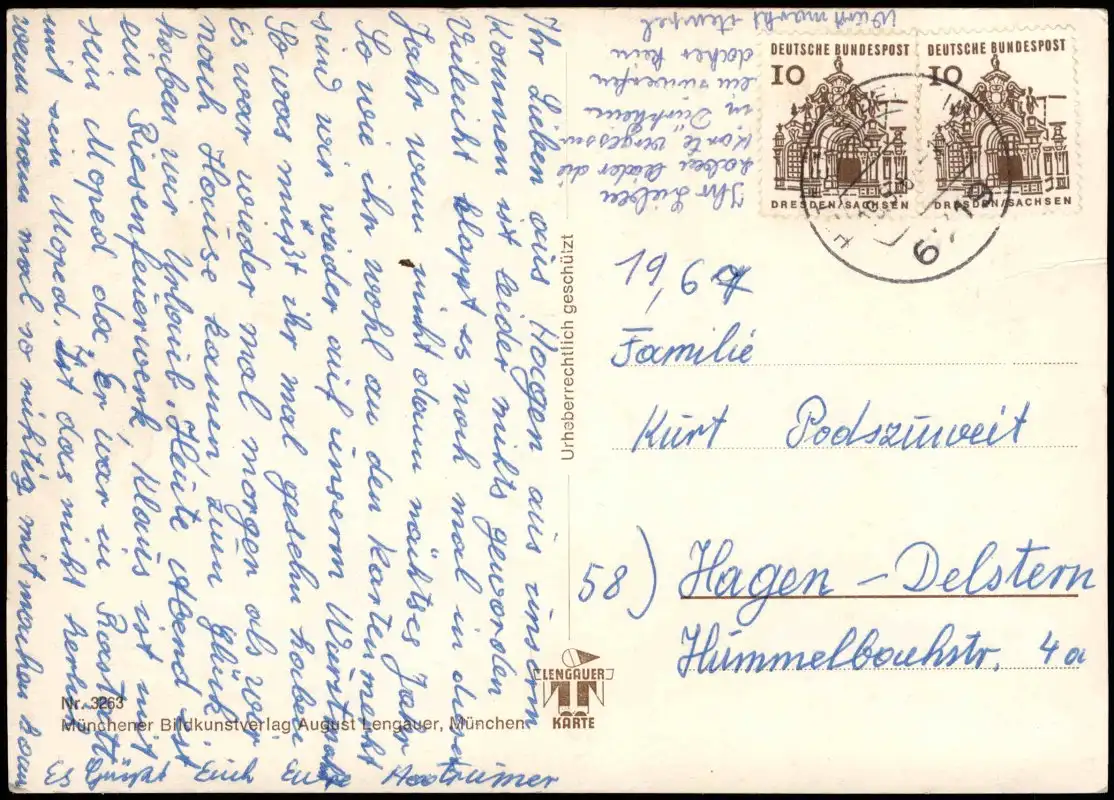 Ihr Lieben aus Hagen aus unserm
Kommen ist leider nichts geworden
Vieleicht klappt es noch mal in diesem
Jahr wenn nicht dann nächtses Jaar
So wie ihr wohl an den Karten merkt
sind wir wieder auf unserm Wurstmarkt
So was müsst ihr mal gesehn haben
Es war wieder mal morgen als wir
nach Hause kamen zum Glück
haben wir Urlaub. Heute Abend ist
ein Riesenfeuerwerk Klaus ist mit
sein Moped da. Er war in Rastatt
mit sein Moped. Ist das nicht herlich
wenn man mal so richtig mitmachen kann
Es Grüßt Euch Eure
Ihr Lieben
haben leider die
Karte vergessen
in Dürkheim
ein zuwerfen
daher kein
Wurstmarkt stempel
DEUTSCHE BUNDESPOST
10
DRESDEN/SACHSEN
DEUTSCHE BUNDESPOST
10
DRESDEN/SACHSEN
19/6
Familie
Kurt Podszuweit
58) Hagen – Delstern
Hümmelbachstr. 4a
Urheberrechtlich geschützt
LENGAUER
KARTE
Nr. 3263
Münchener Bildkunstverlag August Lengauer, München